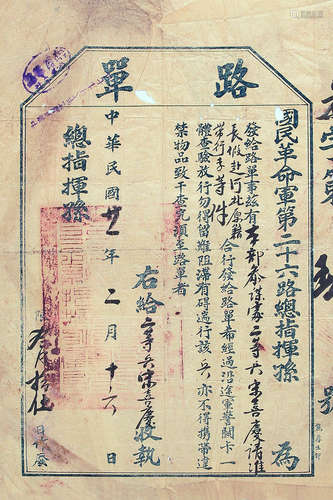 路單
國民革命軍第二十六路總指揮孫 為
發給路單事茲有本部參謀處二等兵宋喜慶請准
長假赴河北原籍
帶行李等件 合行發給路單希經過沿途軍警關卡一
體查驗放行勿得留難阻滯有碍過行該兵亦不得携帶違
禁物品致干查究須至路單者
右給二等兵宋喜慶收執
中華民國廿一年二月十六日
總指揮孫